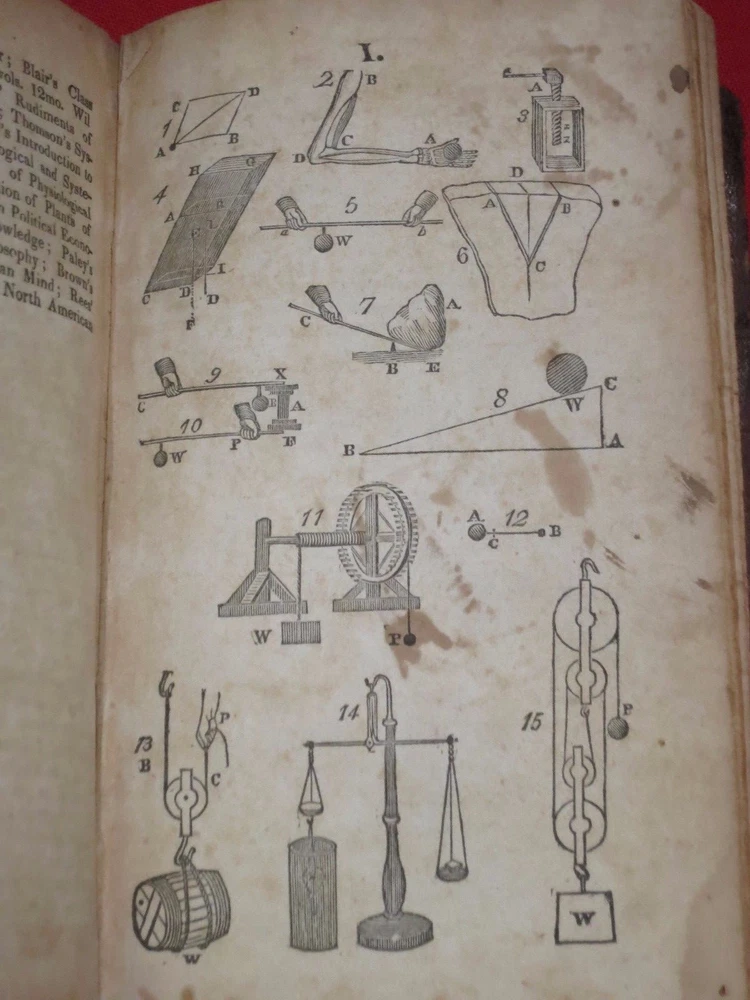 ; Blair's Class
ols. 12mo. Wil
Rudiments of
; Thomson's Sys-
's Introduction to
ogical and Syste-
of Physiological
ion of Plants of
n Political Econo-
owledge; Paley's
osophy; Brown's
an Mind; Rees'
North American
I.
C D
1
A B
2 B
D C A
A
3
H G
4 A
C D I
D
F
5
a W b
D
A B
6
C
7
C A
B E
9 X
C B A
10
W P E
8
W C
B A
11
W P
A 12
C B
13
B P
C
W
14
15
P
W